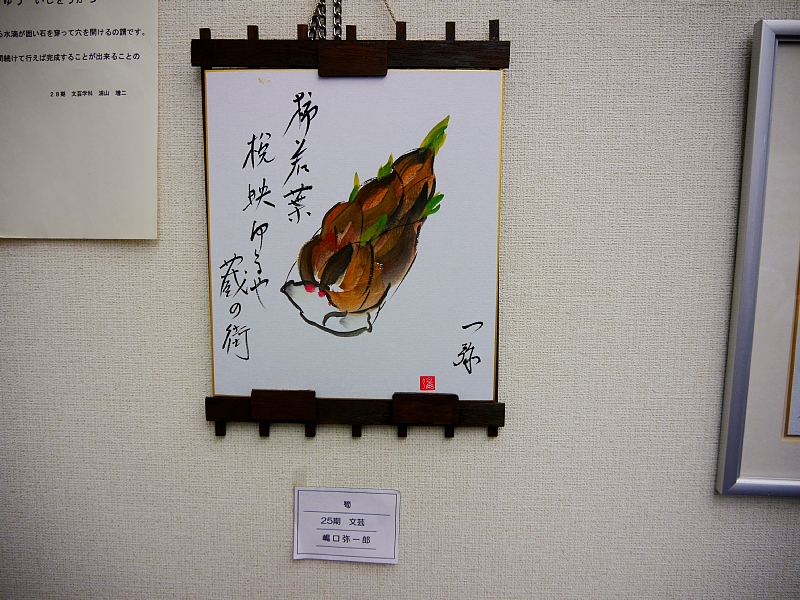 ゆう いしをうがつ
る水滴が固い石を穿って穴を開けるの謂です。
間続けて行えば完成することが出来ることの
28期 文芸学科 浦山 増二
柿若葉
映ゆるや
蔵の街
一弥
筍
25期 文芸
嶋口弥一郎